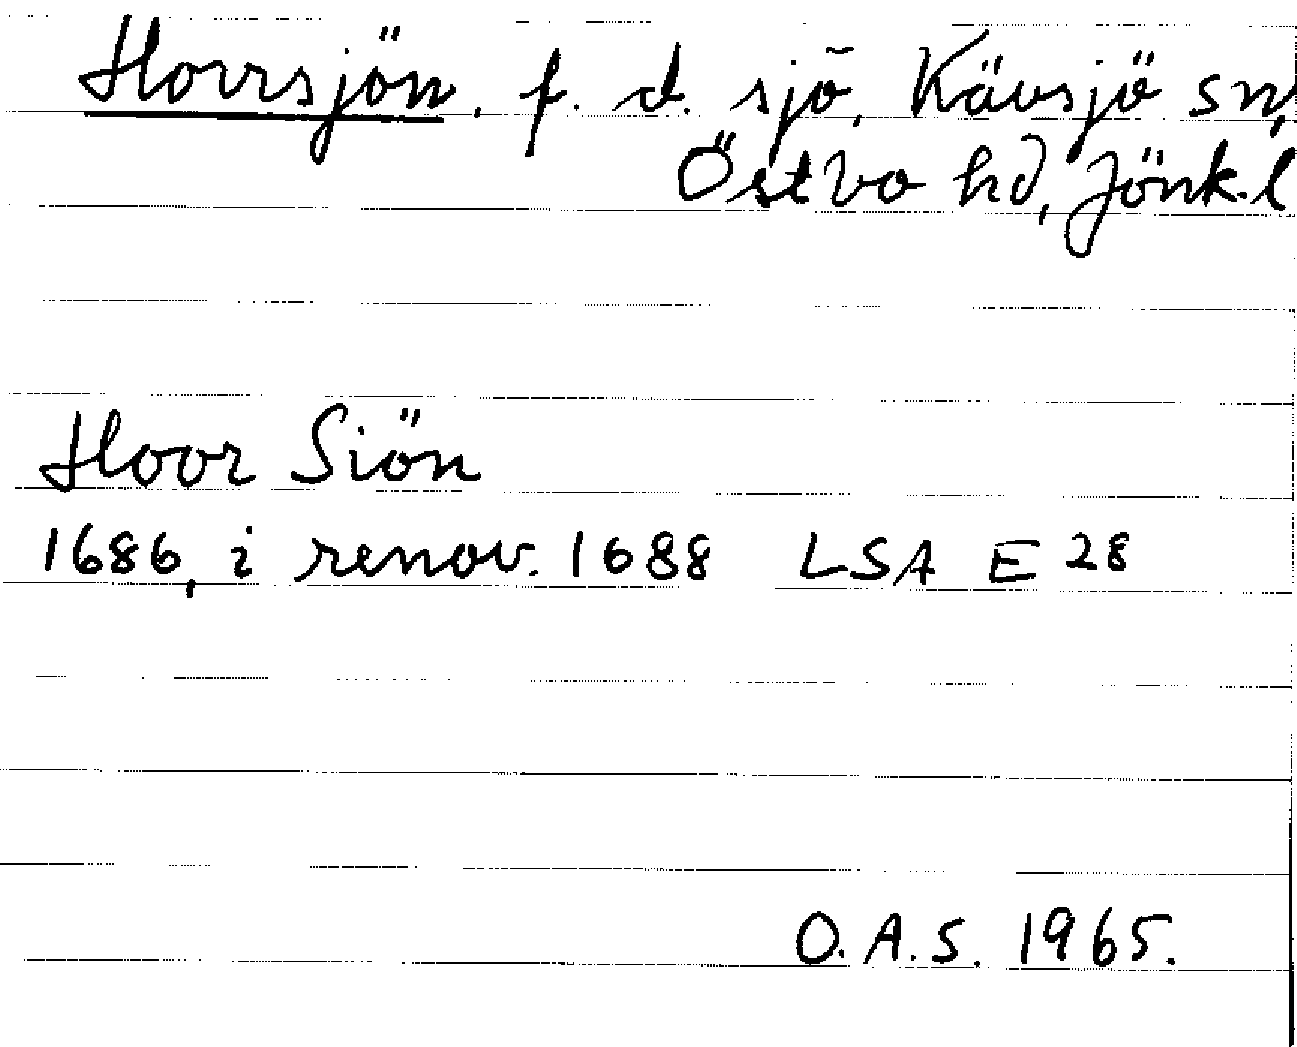 Horrsjön, f. d. sjö, Kävsjö sn,
Östbo hd, Jönk. l
Hoor Siön
1686, i renov. 1688 LSA E 28
O. A. S. 1965.